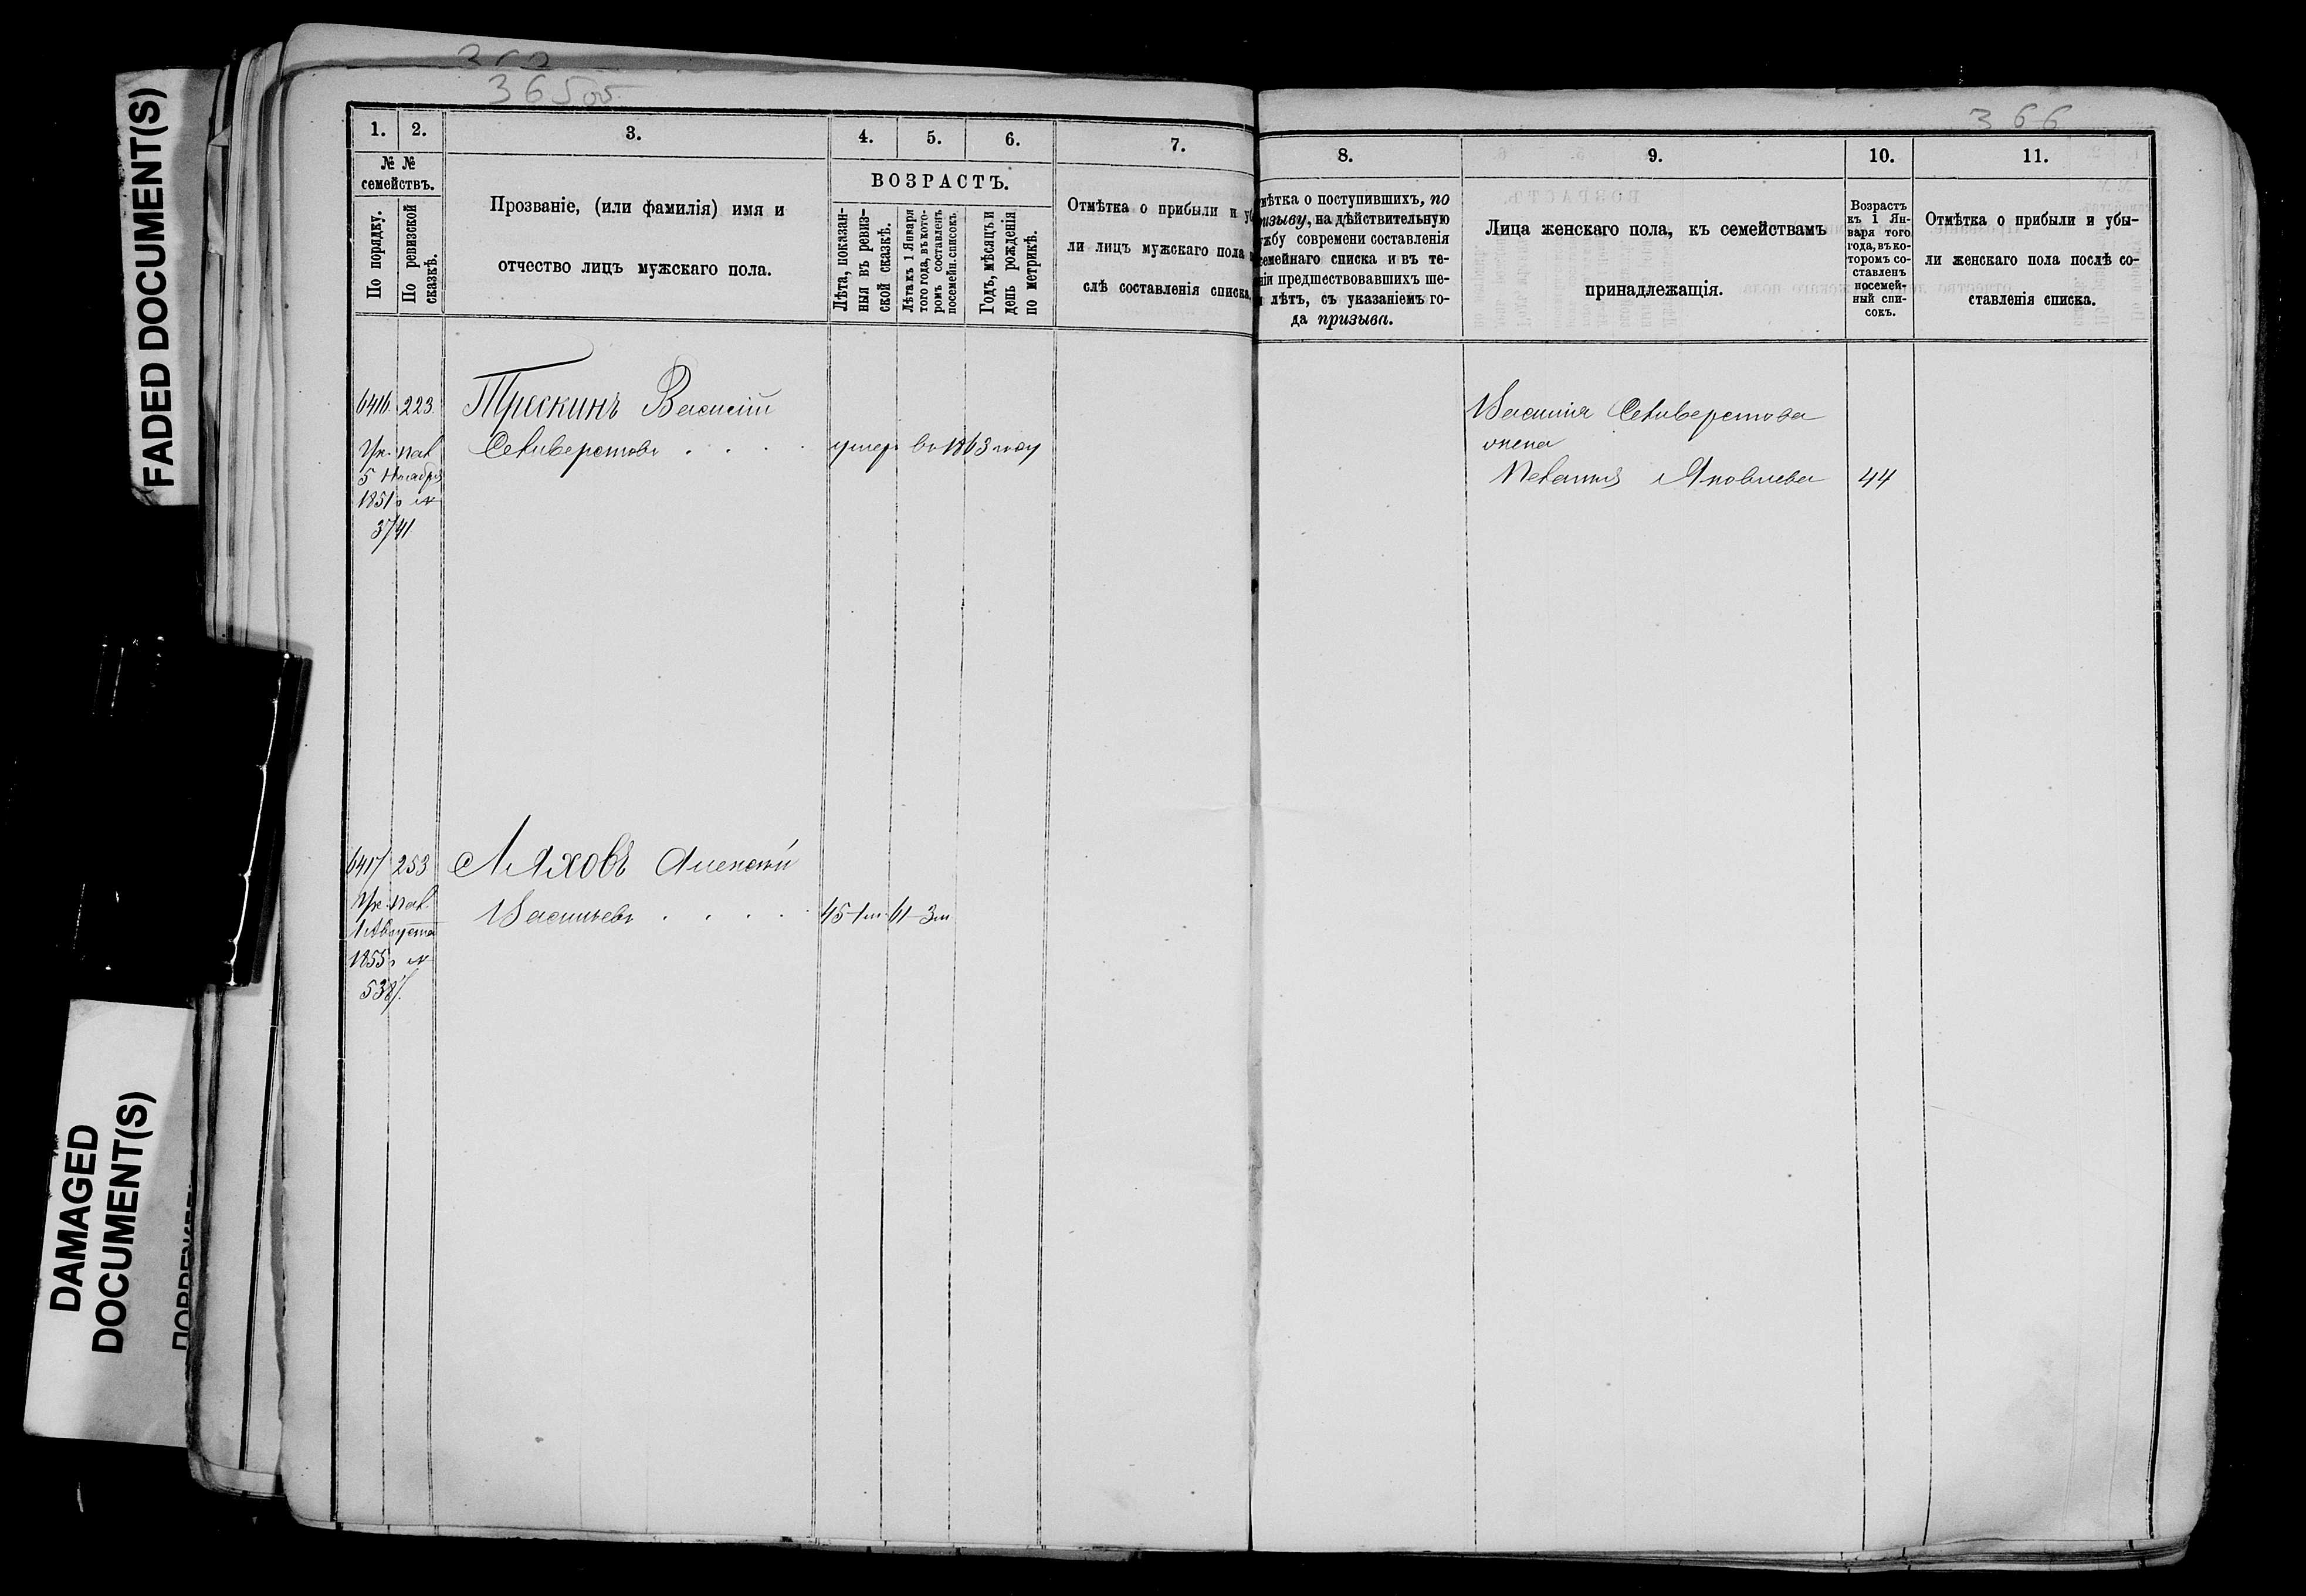 FADED DOCUMENT(S)
DAMAGED
DOCUMENT(S)
365 об
366
1.
2.
3.
4.
5.
6.
7.
№ №
семействъ.
По порядку.
По ревизской
сказкѣ.
Прозваніе, (или фамилія) имя и
отчество лицъ мужскаго пола.
ВОЗРАСТЪ.
Лѣта, показан-
ныя въ ревиз-
ской сказкѣ.
Лѣта къ 1 Января
того года, въ кото-
ромъ составленъ
посемейн. списокъ.
Годъ, мѣсяцъ и
день рожденія
по метрикѣ.
Отмѣтка о прибыли и уб
ли лицъ мужскаго пола
слѣ составленія списка.
8.
9.
10.
11.
мѣтка о поступившихъ, по
ризыву, на дѣйствительную
жбу современи составленія
семейнаго списка и въ те-
ніи предшествовавшихъ ше-
лѣтъ, съ указаніемъ го-
да призыва.
Лица женскаго пола, къ семействамъ
принадлежащія.
Возрастъ
къ 1 Ян-
варя того
года, въ ко-
торомъ со-
ставленъ
посемей-
ный спи-
сокъ.
Отмѣтка о прибыли и убы-
ли женскаго пола послѣ со-
ставленія списка.
6416 223
Трескинъ Василій
Селиверстовъ умеръ въ 1863 году
5 Ноября
1851 г №
3741
Василія Селиверстова
жена
Пелагия Яковлева 44
6417 253
Ляховъ Алексѣй
Васильевъ 45-1м 61-3м
1 Августа
1855 г №
5387.